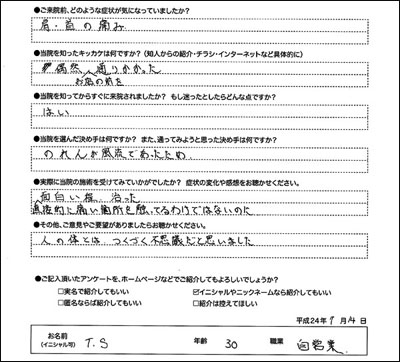 ●ご来院前、どのような症状が気になっていましたか?
肩・首の痛み
●当院を知ったキッカケは何ですか?(知人からの紹介・チラシ・インターネットなど具体的に)
偶然 通りかかった
お店の前を
●当院を知ってからすぐに来院されましたか? もし迷ったとしたらどんな点ですか?
はい
●当院を選んだ決め手は何ですか? また、通ってみようと思った決め手は何ですか?
のれんが風流であったため
●実際に当院の施術を受けてみていかがでしたか? 症状の変化や感想をお聴かせください。
面白い程、治った
直接的に痛い箇所を触ってるわけではないのに
●その他、ご意見やご要望がありましたらお聴かせください。
人の体とは つくづく不思議だと思いました
●ご記入頂いたアンケートを、ホームページなどでご紹介してもよろしいでしょうか?
□実名で紹介してもいい ☑イニシャルやニックネームなら紹介してもいい
□匿名ならば紹介してもいい □紹介は控えてほしい
平成24年 9月 日
お名前 (イニシャル可) T.S 年齢 30 職業 自営業